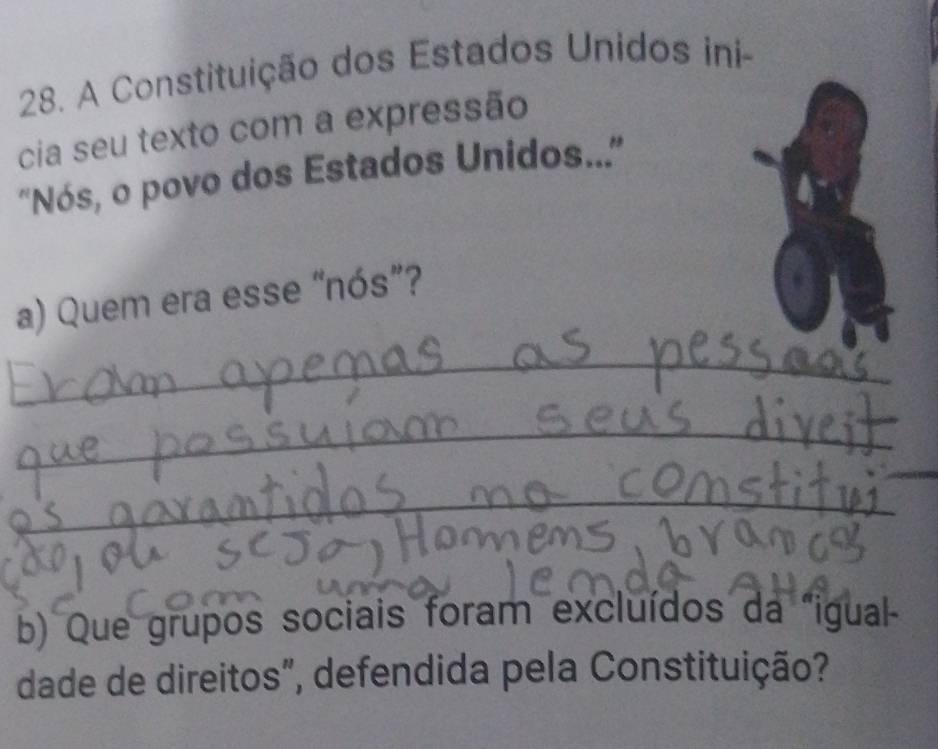 28. A Constituição dos Estados Unidos ini-
cia seu texto com a expressão
"Nós, o povo dos Estados Unidos..."
a) Quem era esse "nós"?
Eram apemas as pessoas
que possuiam seus direit
os garantidos ma comstitui
ção, ou seja, Homens, brancos
e com uma lenda
b) Que grupos sociais foram excluídos da "igual-
dade de direitos", defendida pela Constituição?